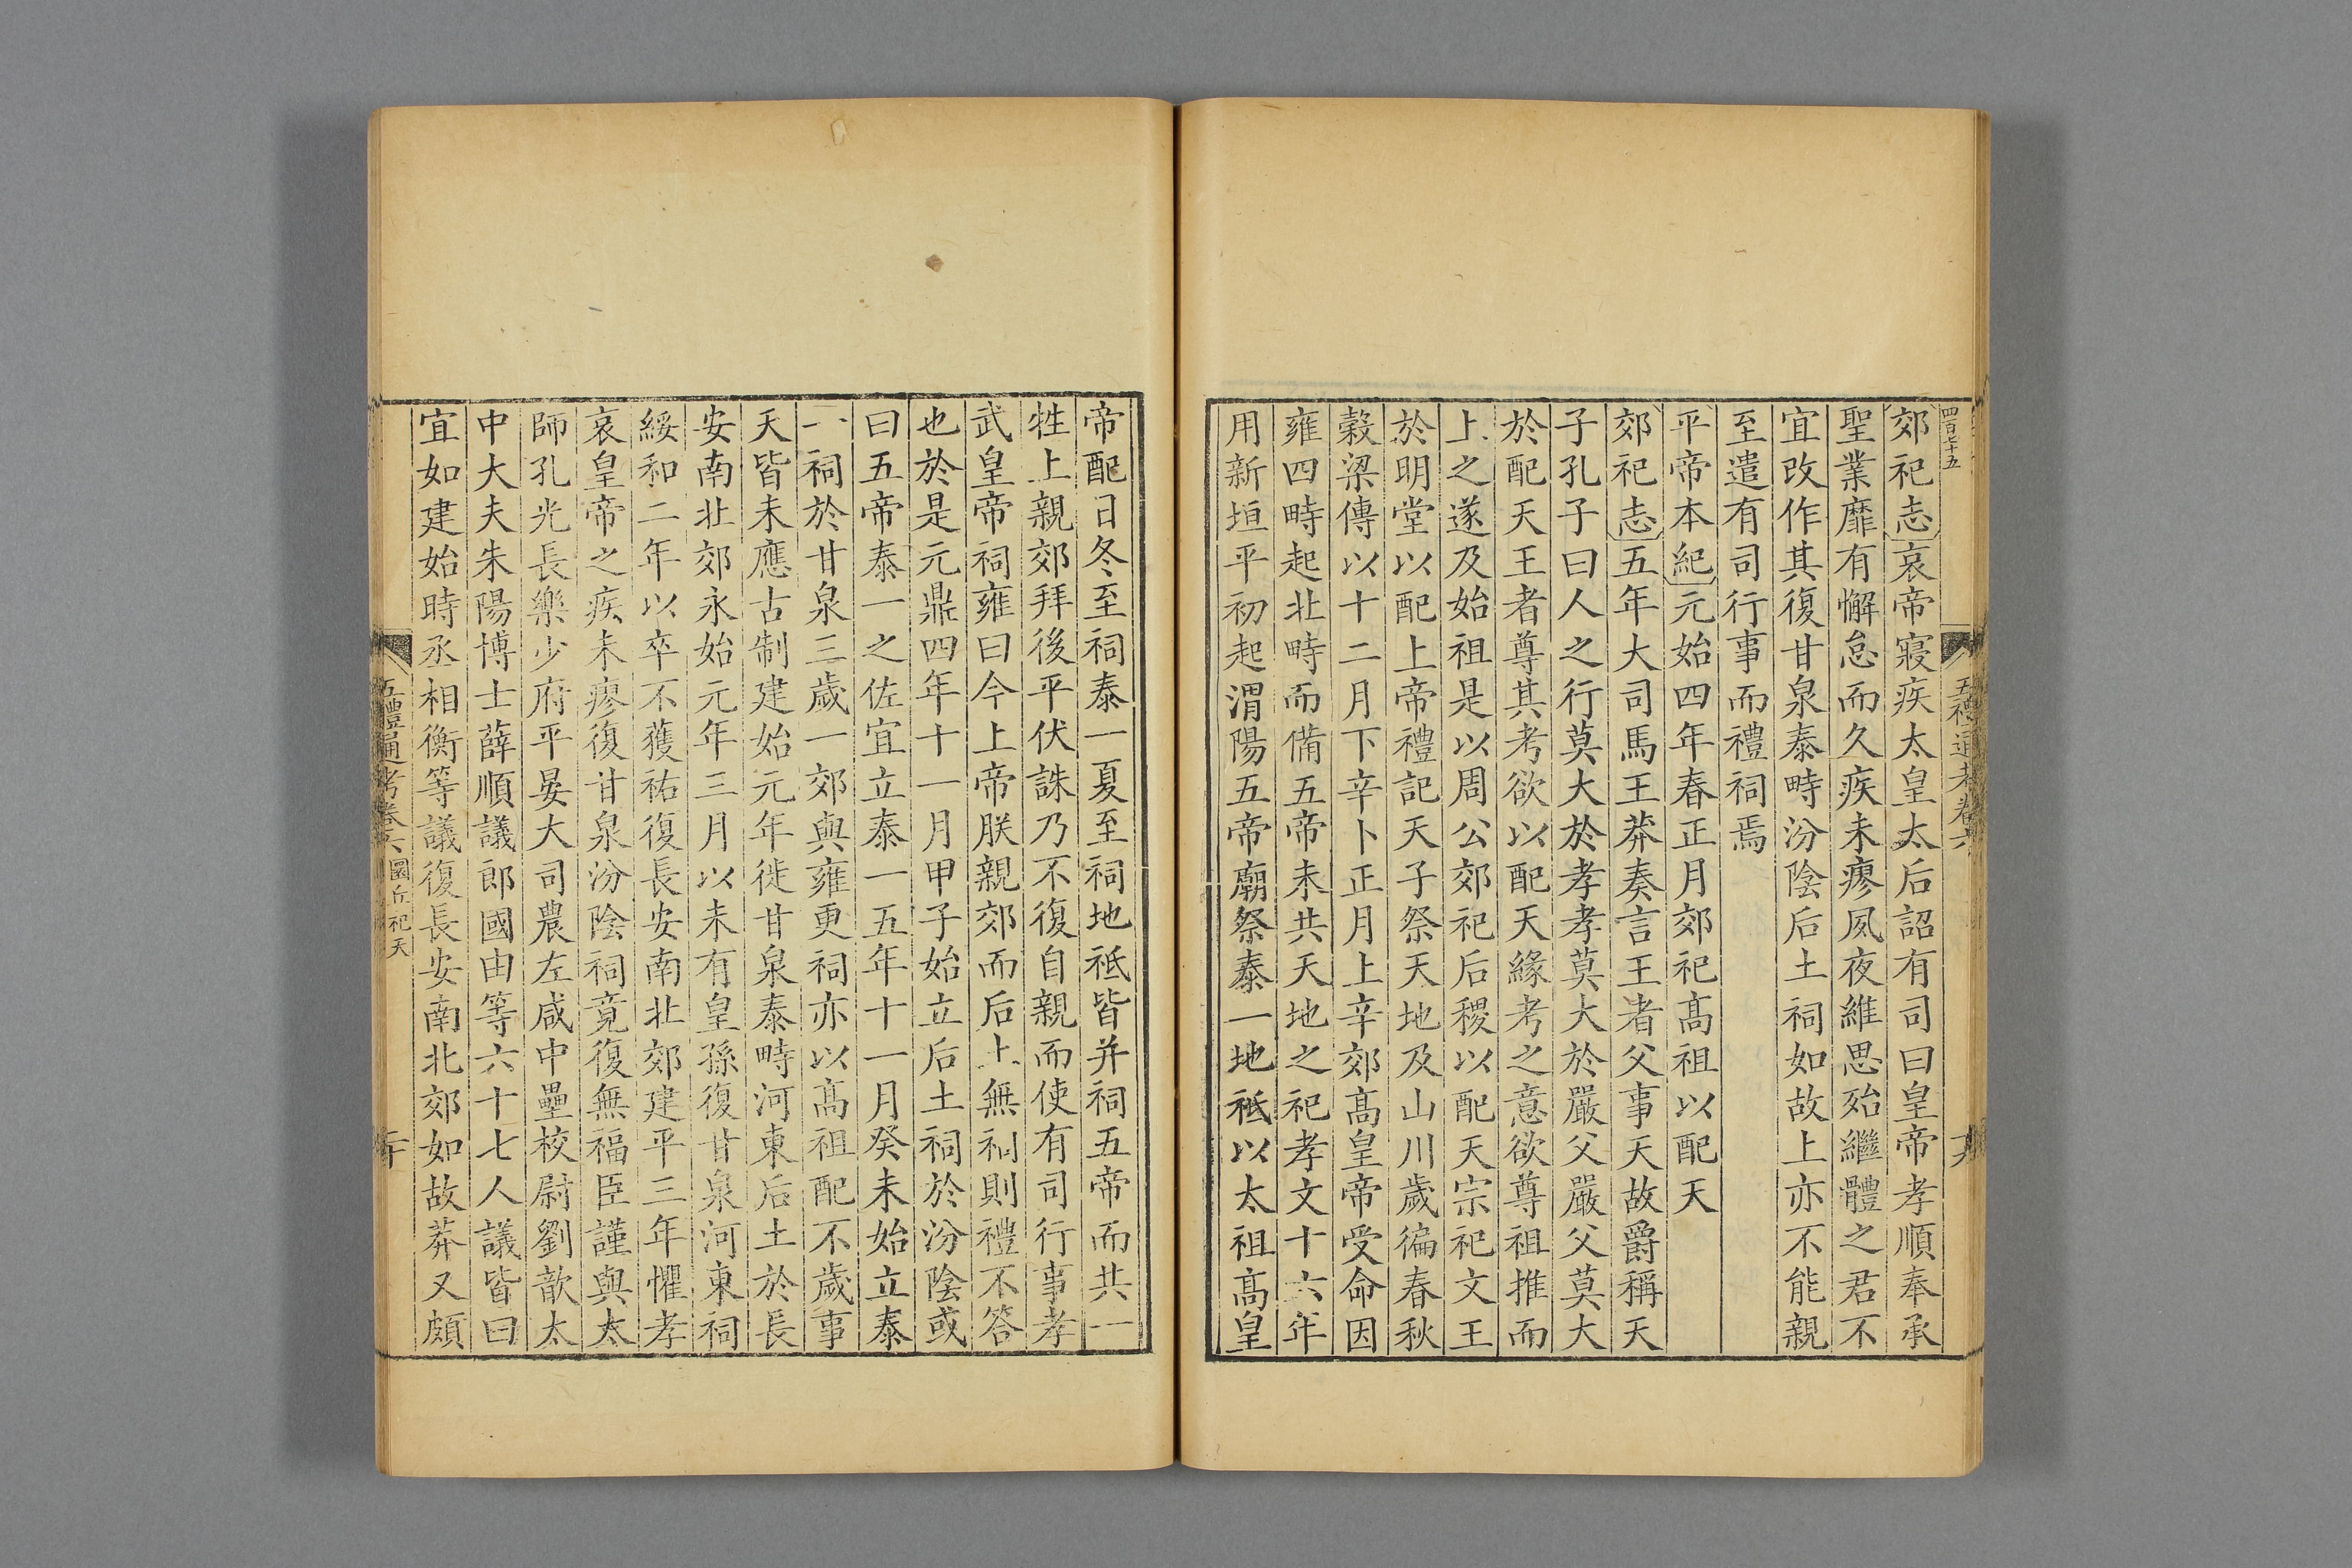 四百七十五
五禮通考卷六
郊祀志哀帝寢疾太皇太后詔有司曰皇帝孝順奉承
聖業靡有懈怠而久疾未瘳夙夜維思殆繼體之君不
宜改作其復甘泉泰畤汾陰后土祠如故上亦不能親
至遣有司行事而禮祠焉
平帝本紀元始四年春正月郊祀髙祖以配天
郊祀志五年大司馬王莽奏言王者父事天故爵稱天
子孔子曰人之行莫大於孝孝莫大於嚴父嚴父莫大
於配天王者尊其考欲以配天緣考之意欲尊祖推而
上之遂及始祖是以周公郊祀后稷以配天宗祀文王
於明堂以配上帝禮記天子祭天地及山川歲徧春秋
穀梁傳以十二月下辛卜正月上辛郊髙皇帝受命因
雍四畤起北畤而備五帝未共天地之祀孝文十六年
用新垣平初起渭陽五帝廟祭泰一地祗以太祖髙皇
帝配日冬至祠泰一夏至祠地祗皆并祠五帝而共一
牲上親郊拜後平伏誅乃不復自親而使有司行事孝
武皇帝祠雍曰今上帝朕親郊而后土無祠則禮不答
也於是元鼎四年十一月甲子始立后土祠於汾陰或
曰五帝泰一之佐宜立泰一五年十一月癸未始立泰
一祠於甘泉三歲一郊與雍更祠亦以髙祖配不歲事
天皆未應古制建始元年徙甘泉泰畤河東后土於長
安南北郊永始元年三月以未有皇孫復甘泉河東祠
綏和二年以卒不獲祐復長安南北郊建平三年懼孝
哀皇帝之疾未瘳復甘泉汾陰祠竟復無福臣謹與太
師孔光長樂少府平晏大司農左咸中壘校尉劉歆太
中大夫朱陽博士薛順議郎國由等六十七人議皆曰
宜如建始時丞相衡等議復長安南北郊如故莽又頗
五禮通考卷六 圜丘祀天 二十